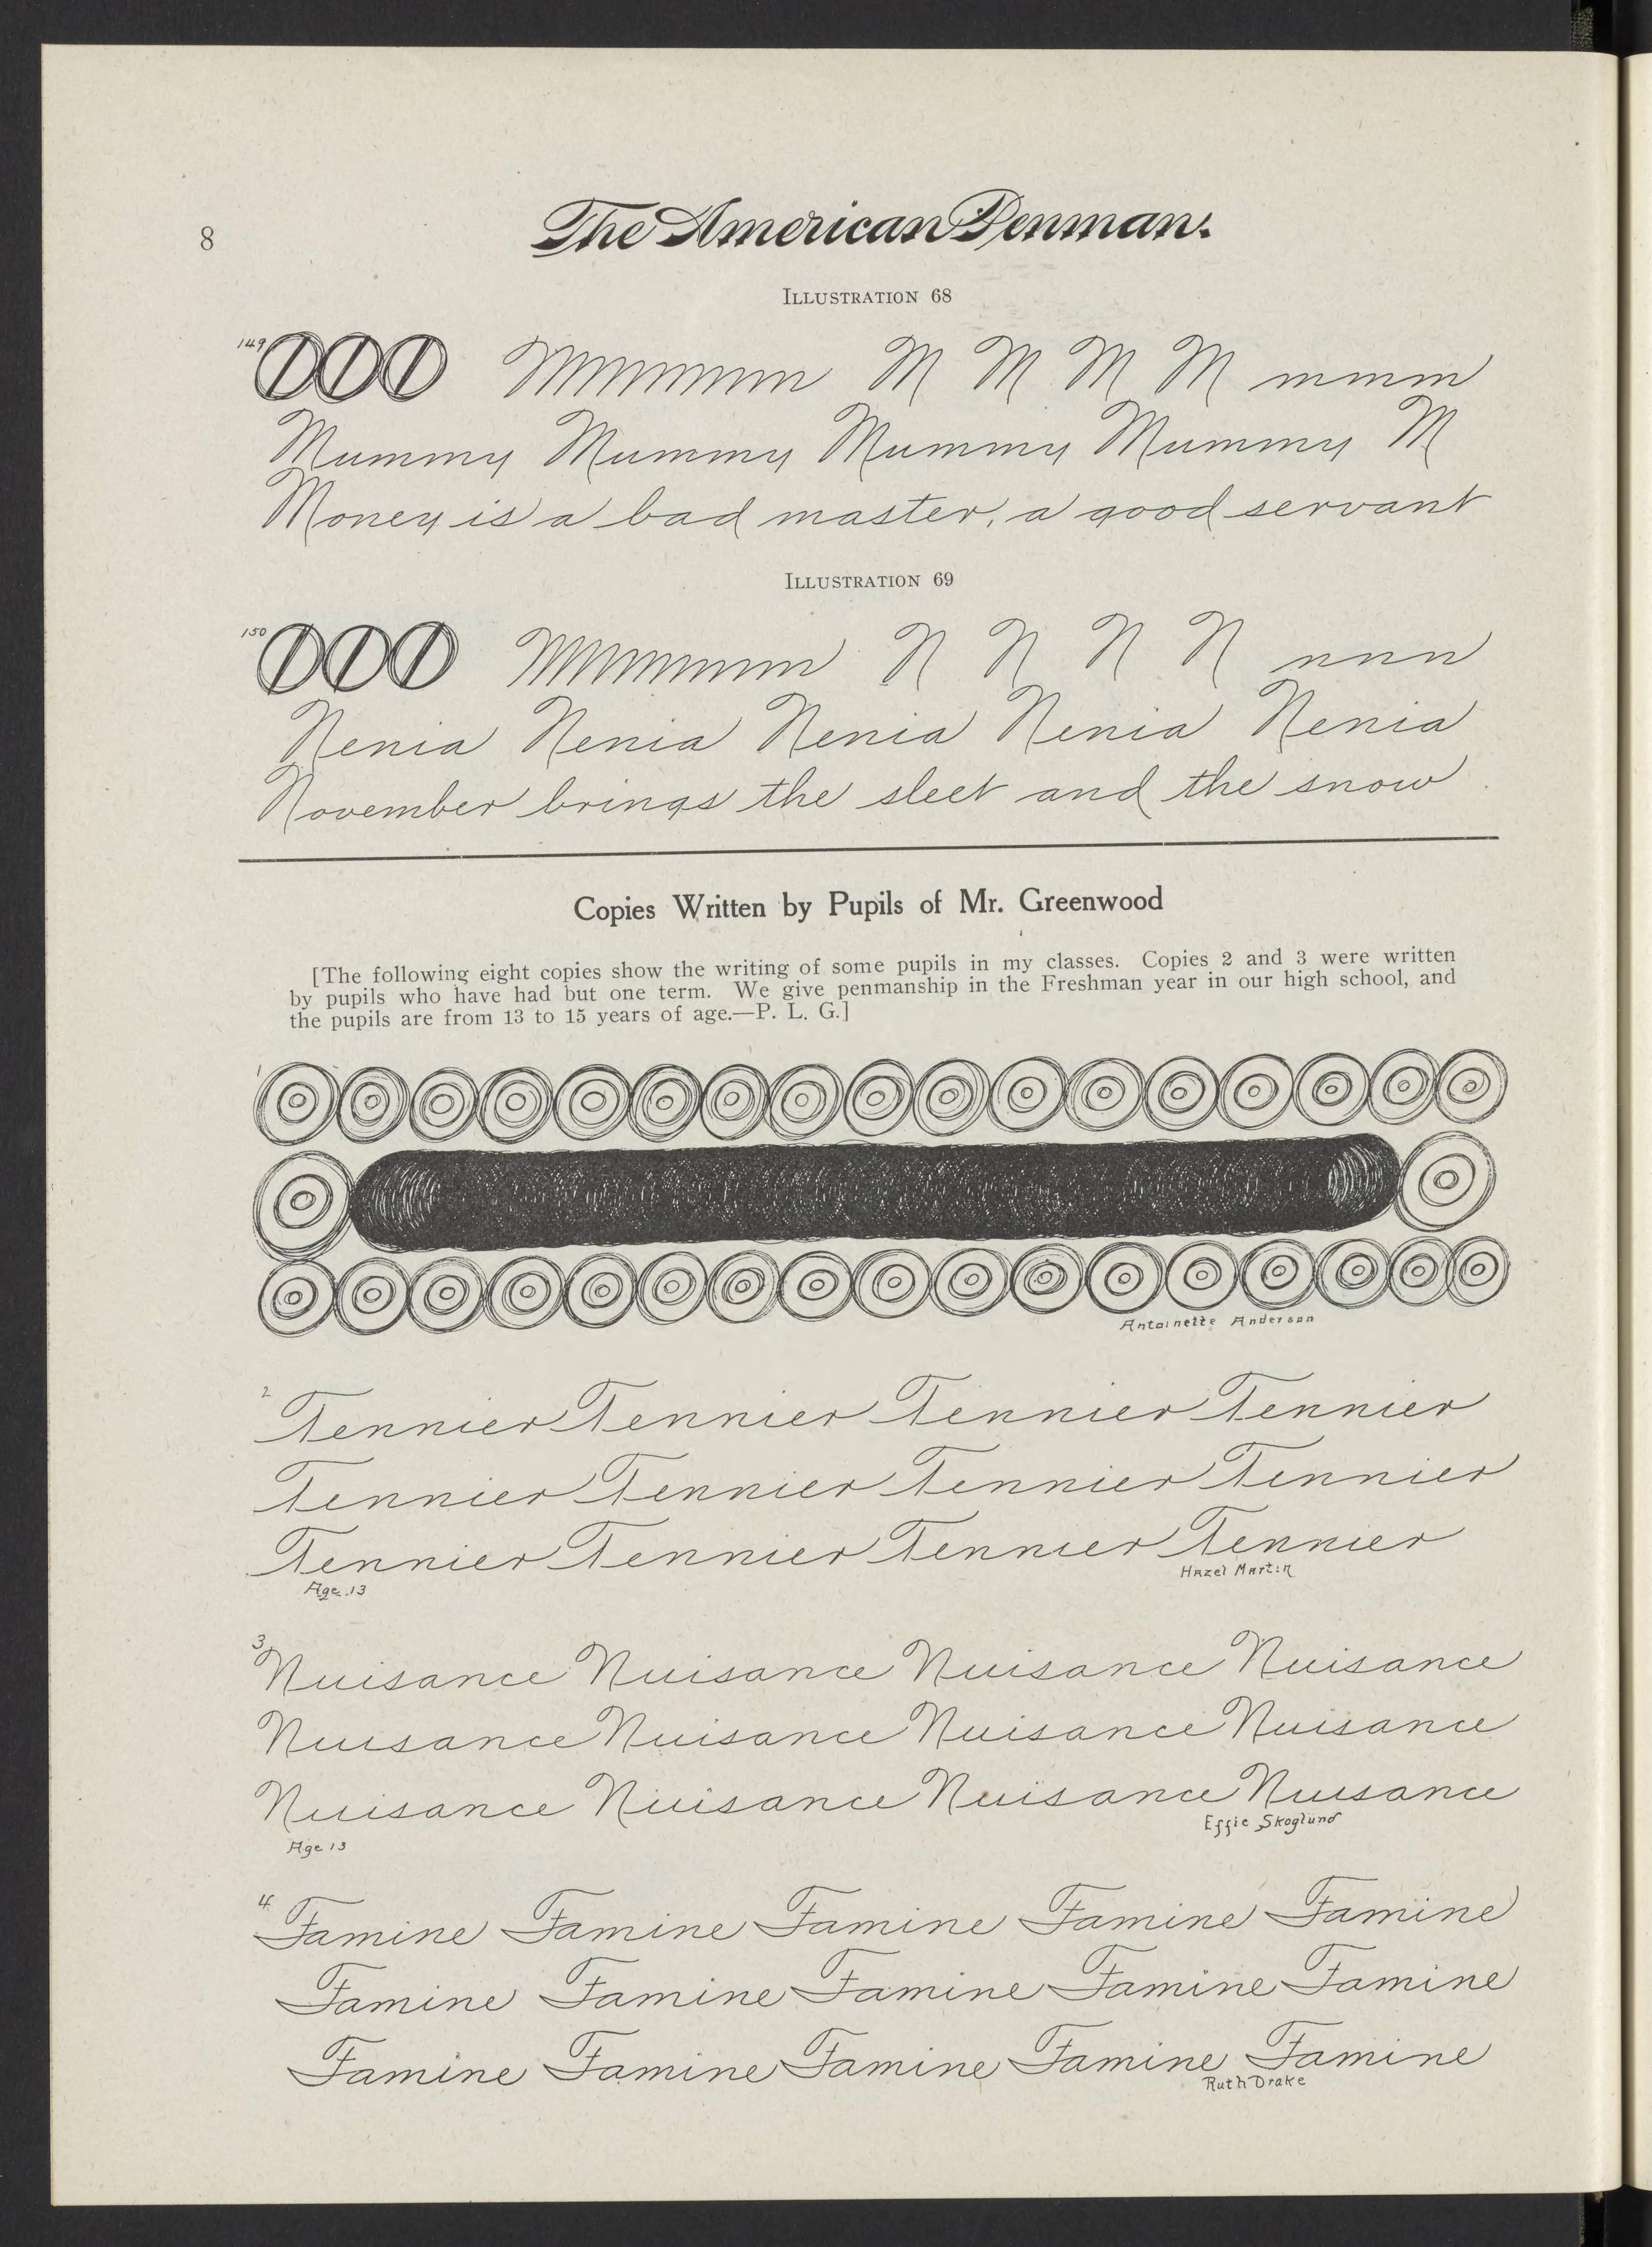 8
The American Penman.
ILLUSTRATION 68
149 Mmmmmmm M M M M m m m
Mummy Mummy Mummy Mummy M
Money is a bad master, a good servant
ILLUSTRATION 69
150 N N N N n n n
Nenia Nenia Nenia Nenia Nenia
November brings the sleet and the snow
Copies Written by Pupils of Mr. Greenwood
[The following eight copies show the writing of some pupils in my classes. Copies 2 and 3 were written
by pupils who have had but one term. We give penmanship in the Freshman year in our high school, and
the pupils are from 13 to 15 years of age.—P. L. G.]
1
Antoinette Anderson
2
Tennier Tennier Tennier Tennier
Tennier Tennier Tennier Tennier
Tennier Tennier Tennier Tennier
Age 13 Hazel Martin
3
Nuisance Nuisance Nuisance Nuisance
Nuisance Nuisance Nuisance Nuisance
Nuisance Nuisance Nuisance Nuisance
Age 13 Effie Skoglund
4
Famine Famine Famine Famine Famine
Famine Famine Famine Famine Famine
Famine Famine Famine Famine Famine
Ruth Drake